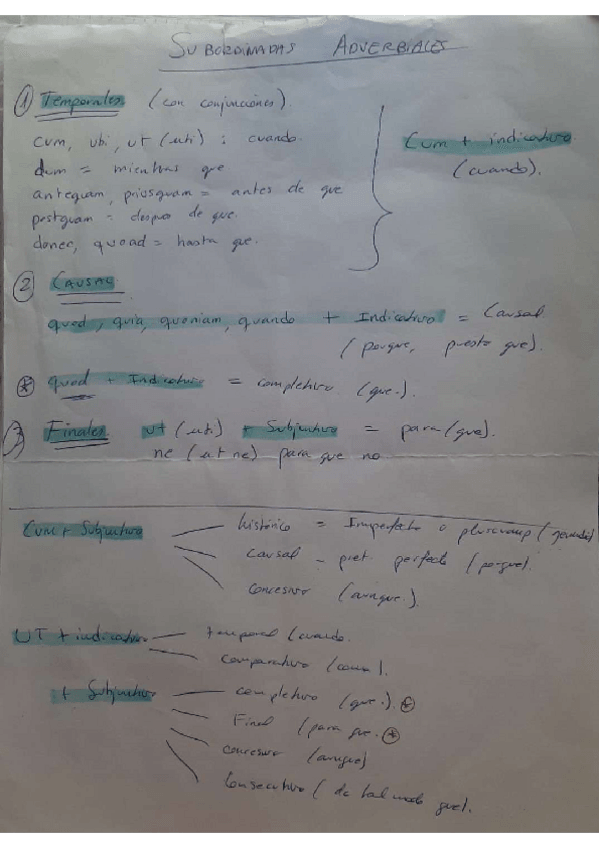 SUBORDINADAS ADVERBIALES
① Temporales (con conjunciones).
cum, ubi, ut (uti) : cuando.
dum = mientras que
antequam, priusquam = antes de que
postquam = despues de que.
donec, quoad = hasta que.
Cum + indicativo
(cuando).
② CAUSAL
quod, quia, quoniam, quando + Indicativo = Causal
(porque, puesto que).
⊛ quod + Indicativo = completivo (que.).
③ Finales ut (uti) + Subjuntivo = para (que).
ne (ut ne) para que no
Cum + Subjuntivo
historico = Imperfecto o pluscuamp (gerundio)
causal - pret. perfecto (porque).
concesivo (aunque.).
UT + indicativo
temporal (cuando.
comparativo (como).
+ Subjuntivo
completivo (que.). ⊛
Final (para que. ⊛
concesivo (aunque)
Consecutivo (de tal modo que).